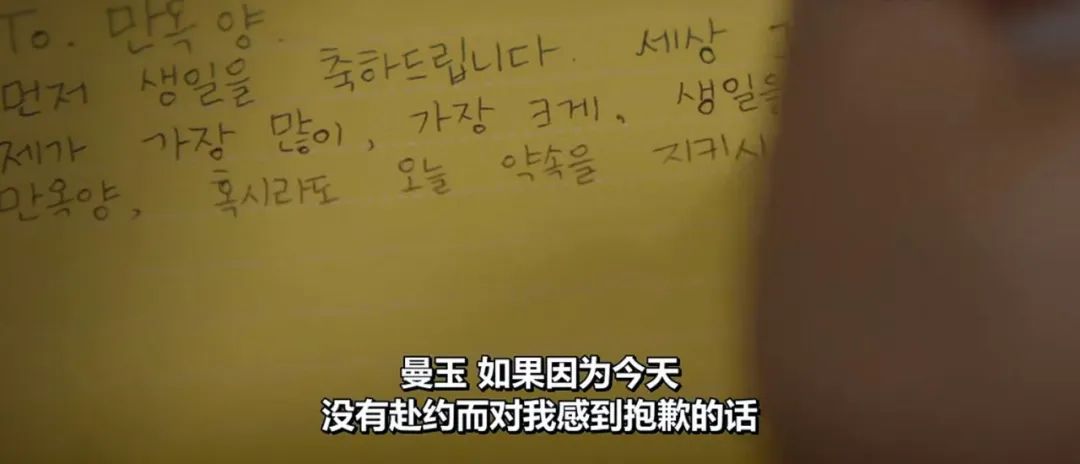 To. 만옥 양.
먼저 생일을 축하드립니다. 세상
제가 가장 많이, 가장 크게, 생일을
만옥양, 혹시라도 오늘 약속을 지키시
曼玉 如果因为今天
没有赴约而对我感到抱歉的话